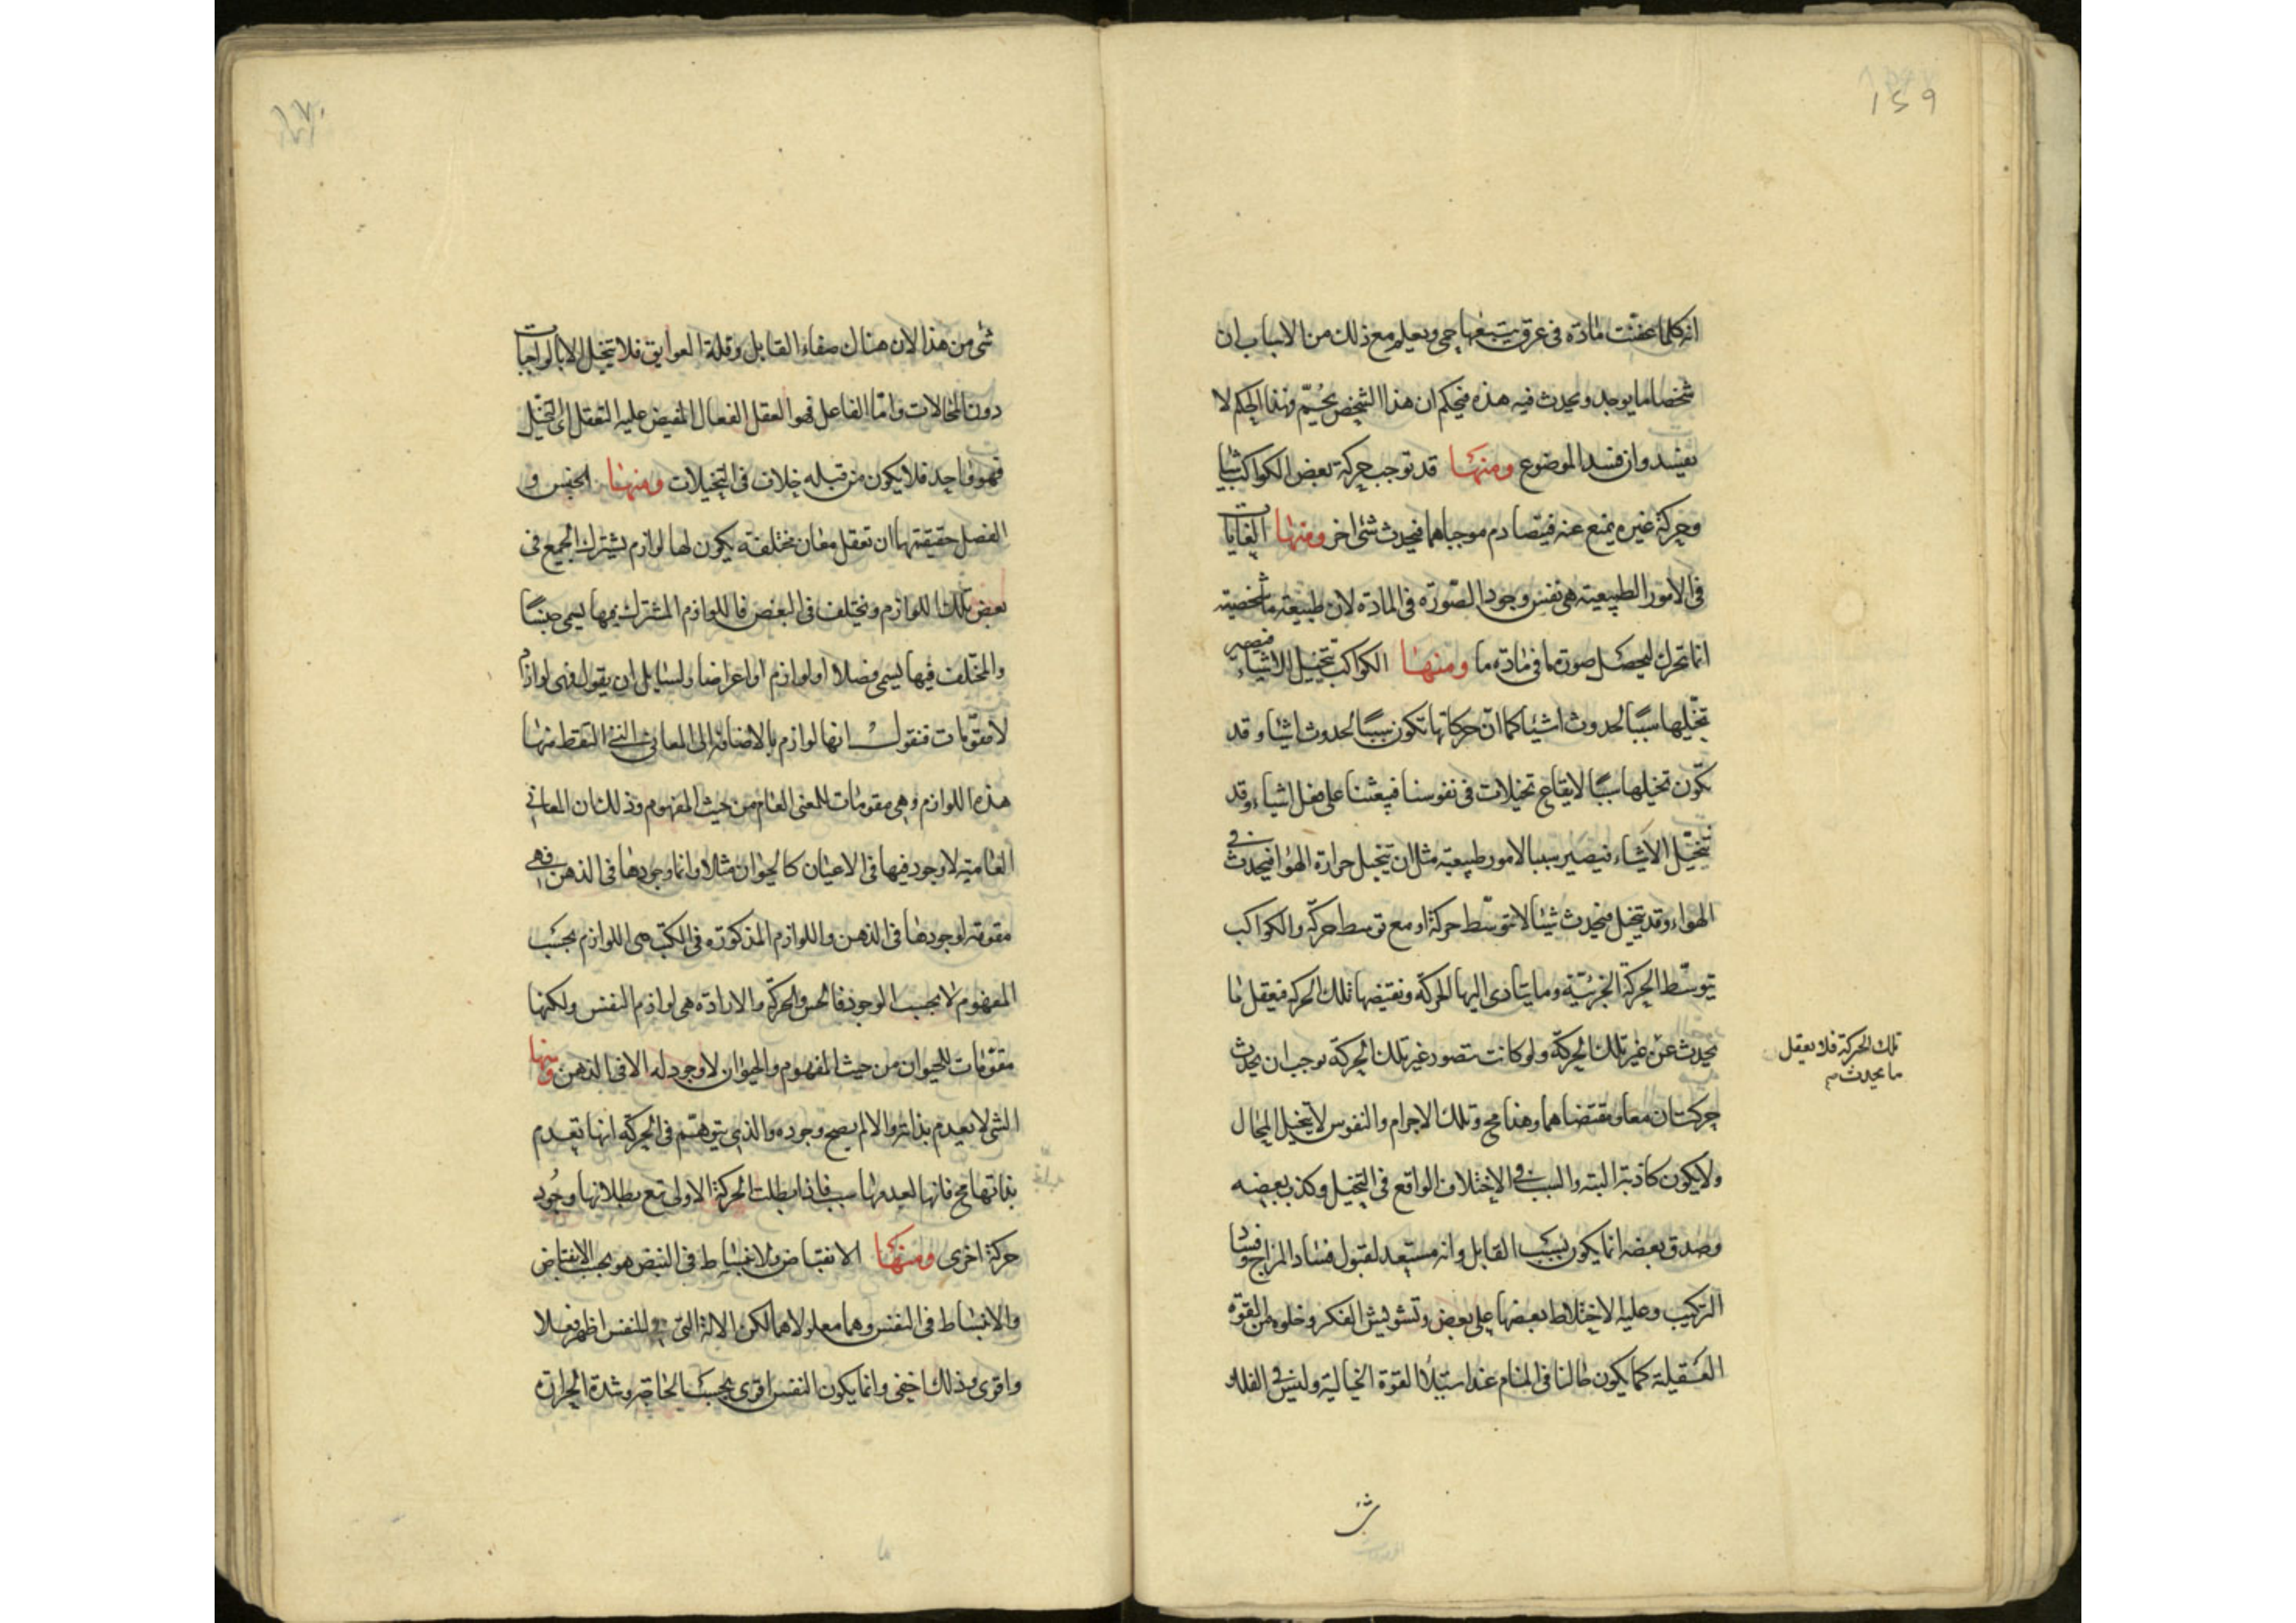 ١٥٩
انه كلما عفنت مادة فى عرق يتبعها حمى ويعلم مع ذلك من الاسباب ان
شخصا ما يوجد ويحدث فيه هذه فيحكم ان هذا الشخص يحم وهذا الحكم لا
يفسد وان فسد الموضوع ومنها قد توجب حركة بعض الكواكب شيا
وحركة غيره يمنع عنه فيتصادم موجباهما فيحدث شئ اخر ومنها الغايات
فى الامور الطبيعية هى نفس وجود الصورة فى المادة لان طبيعة ما شخصية
انما تحرك ليحصل صورة ما فى مادة ما ومنها الكواكب تتخيل الاشياء فيصير
تخيلها سببا لحدوث اشياء كما ان حركاتها تكون سببا لحدوث اشياء وقد
تكون تخيلها سببا لايقاع تخيلات فى نفوسنا فيبعثنا على فعل اشياء وقد
تتخيل الاشياء فيصير سببا لامور طبيعية مثل ان تتخيل حرارة الهواء فيحدث فى
الهواء وقد يتخيل فيحدث شيئا لا بتوسط حركة او مع توسط حركة والكواكب
بتوسط الحركة الجزئية وما يتادى اليها الحركة وتقتضيها تلك الحركة فيعقل ما
يحدث عن غير تلك الحركة ولو كانت تتصور غير تلك الحركة لوجب ان يحدث
تلك الحركة فلا يعقل
ما يحدث
حركتان معا ومقتضاهما وهذا مح وتلك الاجرام والنفوس لا يتخيل المحال
ولا يكون كاذبة البتة والسبب فى الاختلاف الواقع فى التخيل وكذب بعضه
وصدق بعضه انما يكون بسبب القابل وانه مستعد لقبول فساد المزاج وفساد
التركيب وغلبة الاختلاط بعضها على بعض وتشويش الفكر وخلوه من القوة
العقلية كما يكون حالنا فى المنام عند استيلا القوة الخيالية وليس فى الفلك
شئ
١٧٠
شئ من هذا لان هناك صفاء القابل وقلة العوايق فلا يتخيل الا بالواجبات
دون المحالات واما الفاعل فهو العقل الفعال المفيض عليه التعقل اى التخيل
فهو واحد فلا يكون من قبله خلاف فى التخيلات ومنها الجنس و
الفصل حقيقتهما ان تعقل معان مختلفة يكون لها لوازم يشترك الجميع فى
بعض تلك اللوازم ويختلف فى البعض فاللوازم المشترك فيها يسمى جنسا
والمختلف فيها يسمى فصلا او لوازم او اعراضا ولسايل ان يقول فهى لوازم
لا مقومات فنقول انها لوازم بالاضافة الى المعانى التى التقط منها
هذه اللوازم وهى مقومات للمعنى العام من حيث المفهوم وذلك ان المعانى
العامية لا وجود فيها فى الاعيان كالحيوان مثلا وانما وجودها فى الذهن فهى
مقومة لوجودها فى الذهن واللوازم المذكورة فى الكتب هى اللوازم بحسب
المفهوم لا بحسب الوجود فالحس والحركة والارادة هى لوازم النفس ولكنها
مقومات للحيوان من حيث المفهوم والحيوان لا وجود له الا فى الذهن ومنها
الشئ لا يعدم بذاته والا لم يصح وجوده والذى يتوهم فى الحركة انها تعدم
بذاتها مح فانها لعدمها سبب فاذا بطلت الحركة الاولى تبع بطلانها وجود
حركة اخرى ومنها الانقباض والانبساط فى النبض هو بحسب الانقباض
والانبساط فى النفس وهما معلولاهما لكن الالة التى للنفس اظهر فعلا
واقوى وذلك اخفى وانما يكون النفس اقوى بحسب الحاجة وشدة الحرارة